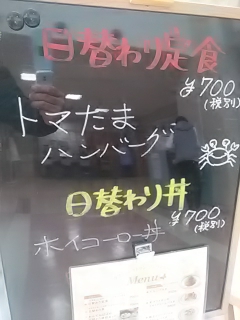 日替わり定食
¥700
(税別)
トマたま
ハンバーグ
日替わり丼
¥700
(税別)
ホイコーロー丼
Menu